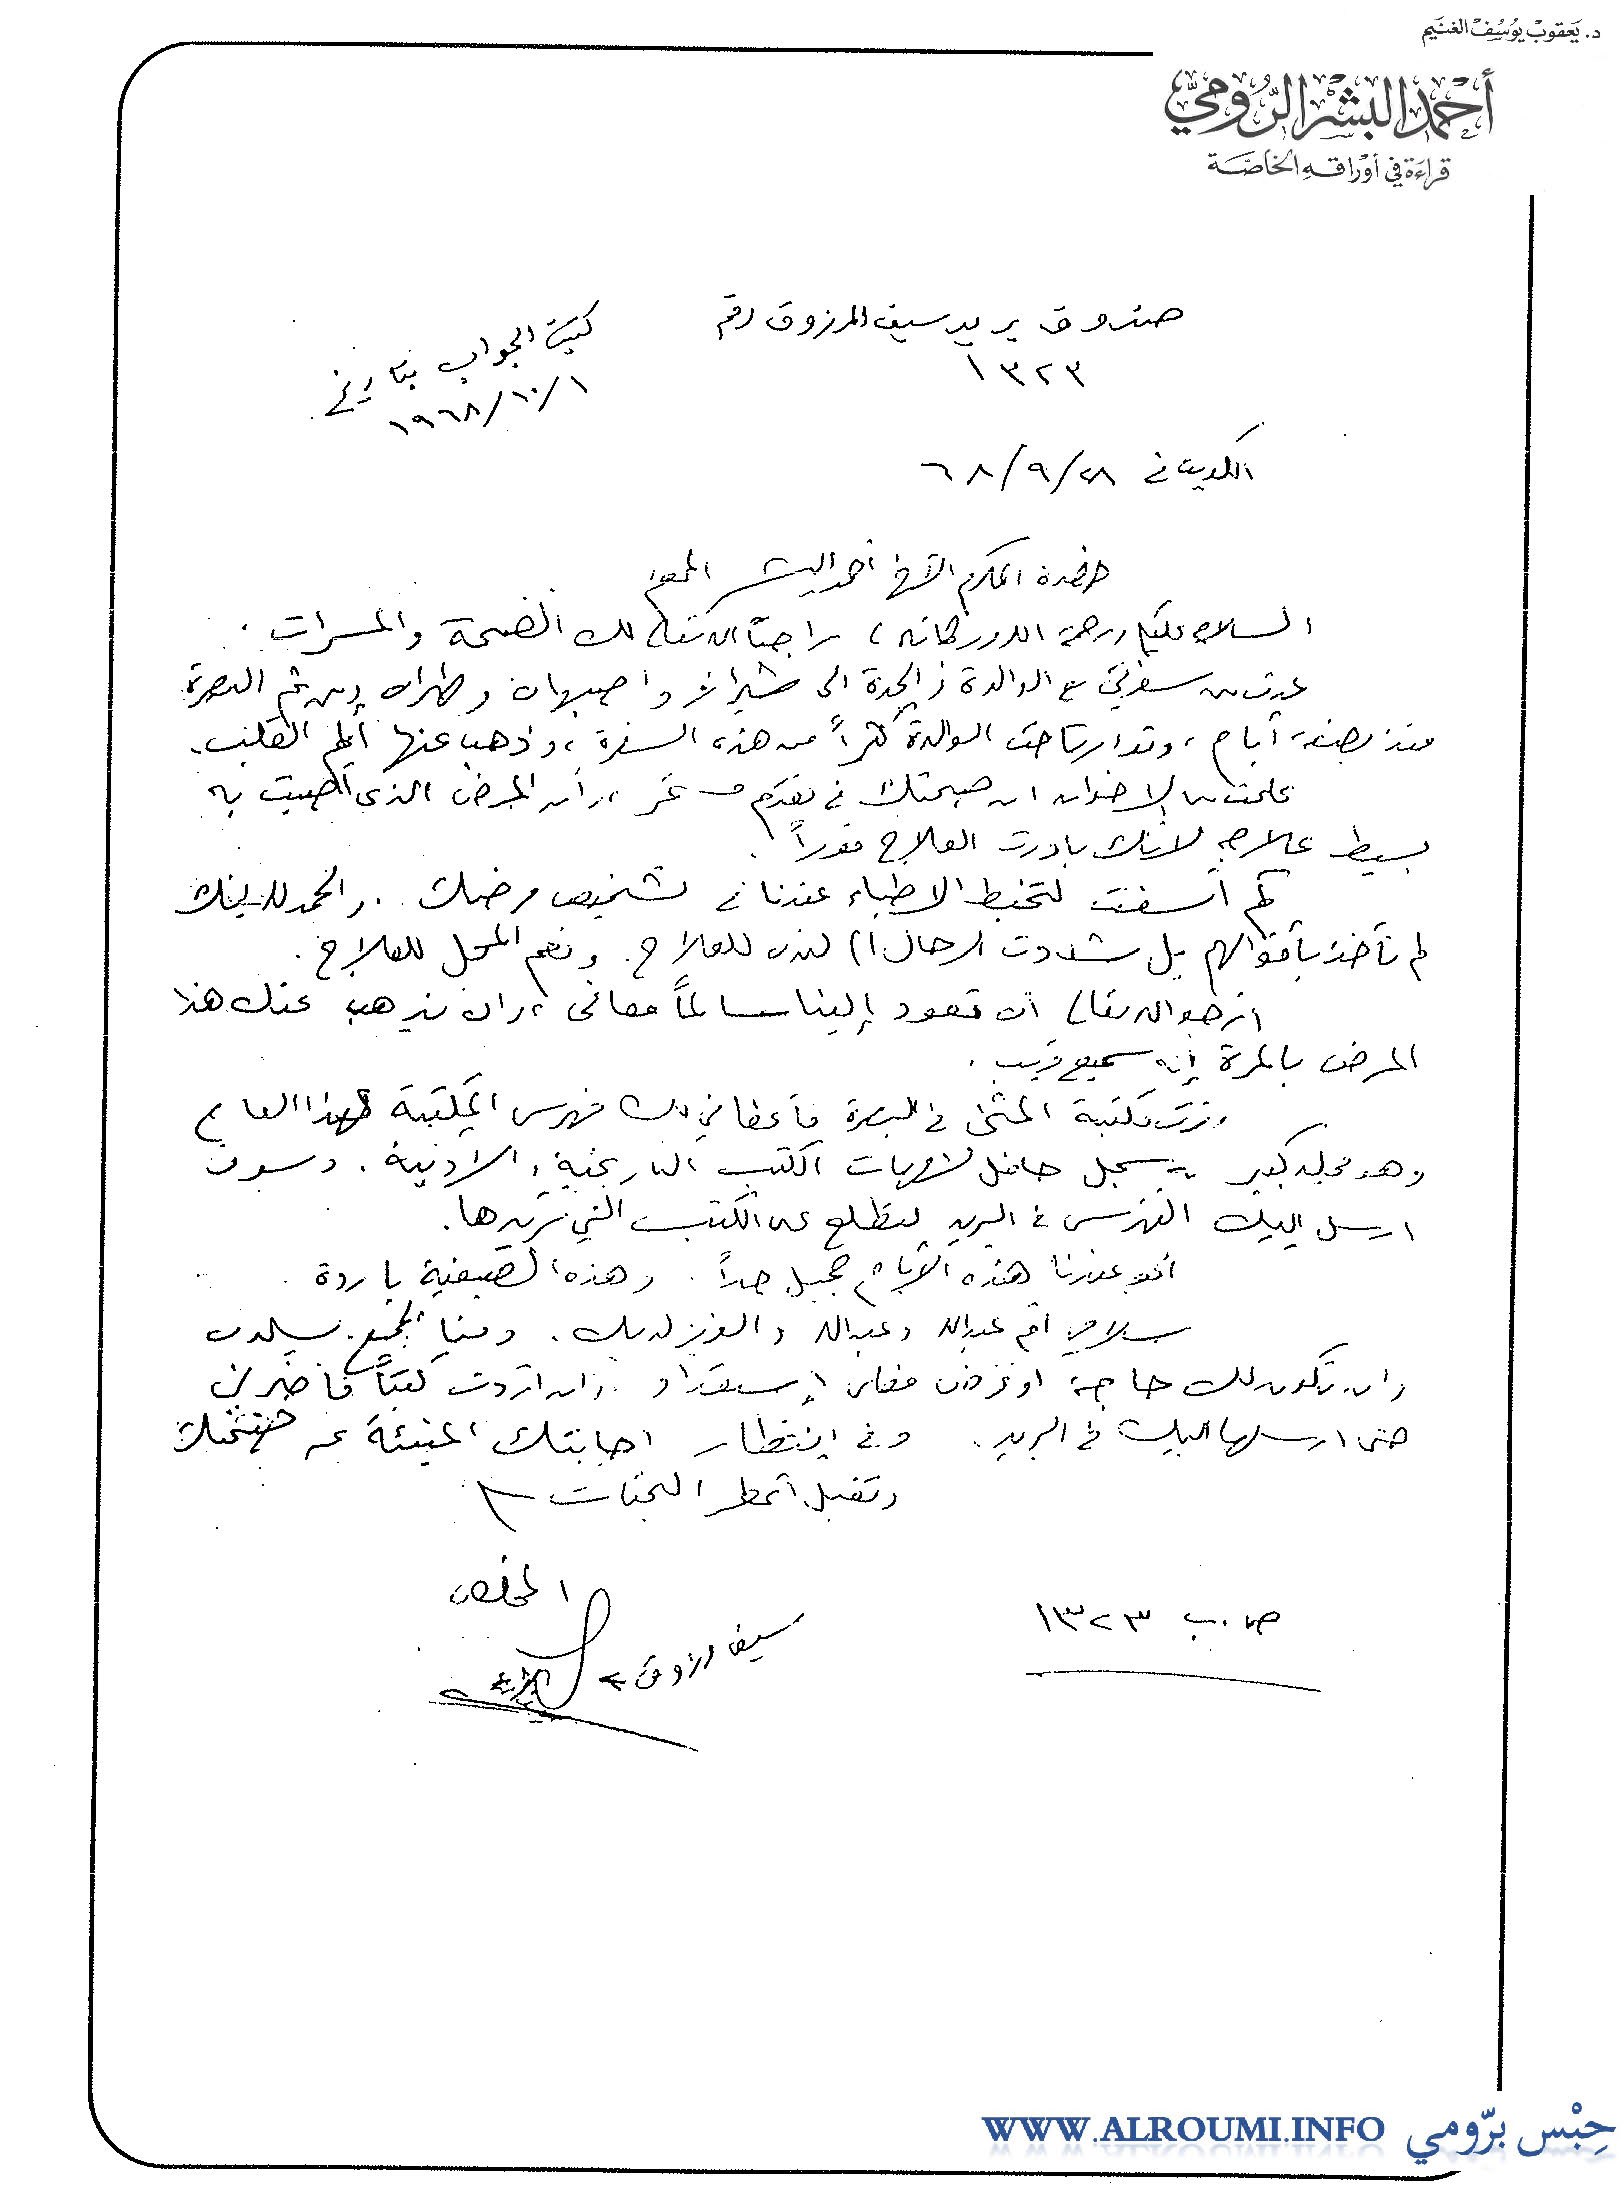 د. يَعقوبْ يوُسُفْ الغنَيم
أحْمَدْ البشْر الرُّومْيّ
قراءَة في أوْراقهِ الخاصَّة
صندوق بريد سيف المرزوق رقم
١٣٢٣
كتبت الجواب بتاريخ
١٩٦٨/١٠/١
الكويت في ٦٨/٩/٢٨
حضرة المكرم الأخ أحمد البشر المحترم
السلام عليكم ورحمة الله وبركاته، راجياً الله تعالى لك الصحة والمسرات.
عدت من سفرتي مع الوالدة والجدة الى شيراز واصبهان وطهران ومن ثم البصرة
منذ بضعة أيام، وقد ارتاحت الوالدة كثيراً من هذه السفرة، وذهب عنها ألم القلب.
علمت من الاخوان ان صحتك في تقدم مستمر، وأن المرض الذي أصبت به
بسيط علاجه لأنك بادرت العلاج فوراً.
كم أسفت لتخبط الاطباء عندنا في تشخيص مرضك. والحمد لله إنك
لم تأخذ بأقوالهم بل شددت الرحال إلى لندن للعلاج. ونعم المحل للعلاج.
ارجو الله تعالى أن تعود إلينا سالماً معافى، وان يذهب عنك هذا
المرض بالمرة إنه سميع قريب.
وزرت مكتبة المثنى في البصرة فأعطاني لك فهرس المكتبة لهذا العام
وهو مجلد كبير يسجل حافل لأمهات الكتب التاريخية والادبية. وسوف
ارسل إليك الفهرس في البريد لتطلع على الكتب التي تريدها.
الجو عندنا هذه الأيام جميل جداً. وهذه الصيفية باردة.
سلامي لأم عبدالله وعبدالله والعزيز لديك. ومنا الجميع يسلمون
وان تكون لك حاجة او غرض فعلى إستعداد. وان اردت كتباً فأخبرني
حتى ارسلها إليك في البريد. وفي إنتظار اجابتك المنبئة عن صحتك
وتقبل أعطر التحيات
المخلص
سيف مرزوق
ص.ب ١٣٢٣
WWW.ALROUMI.INFO حِبْس برّومي